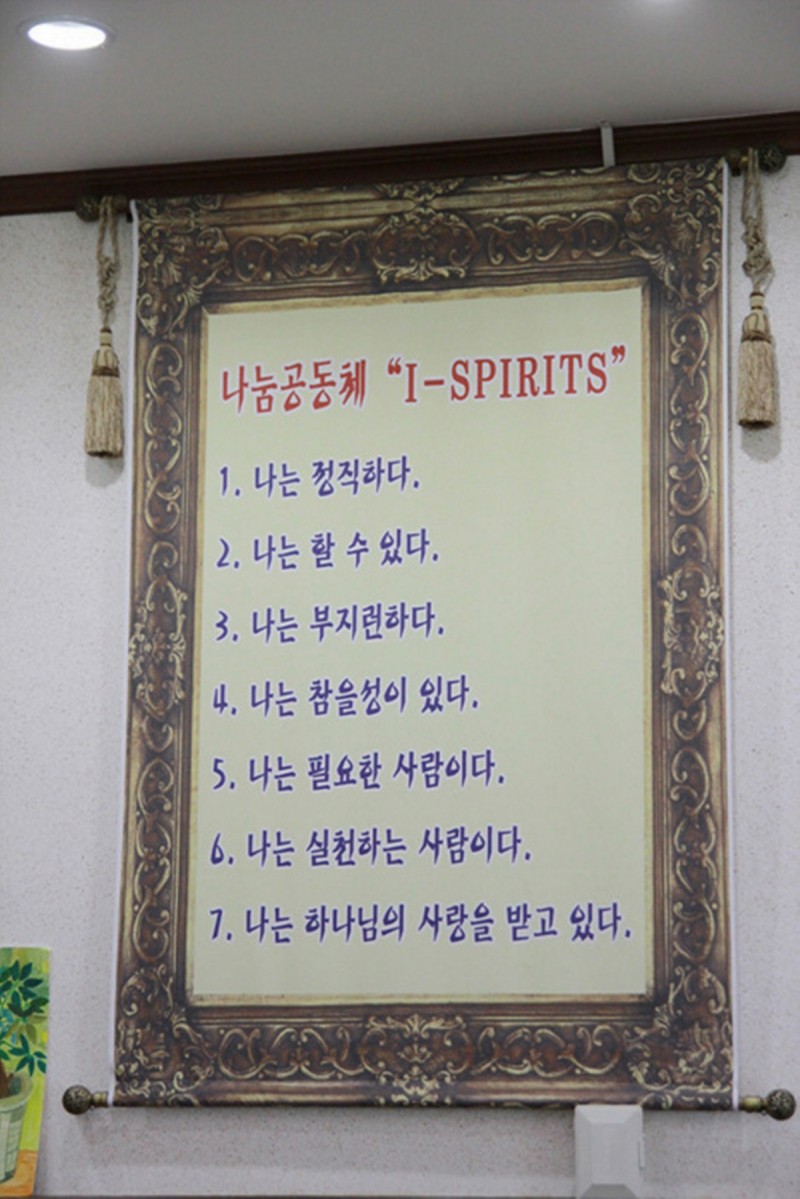 나눔공동체 “I-SPIRITS”
1. 나는 정직하다.
2. 나는 할 수 있다.
3. 나는 부지런하다.
4. 나는 참을성이 있다.
5. 나는 필요한 사람이다.
6. 나는 실천하는 사람이다.
7. 나는 하나님의 사랑을 받고 있다.